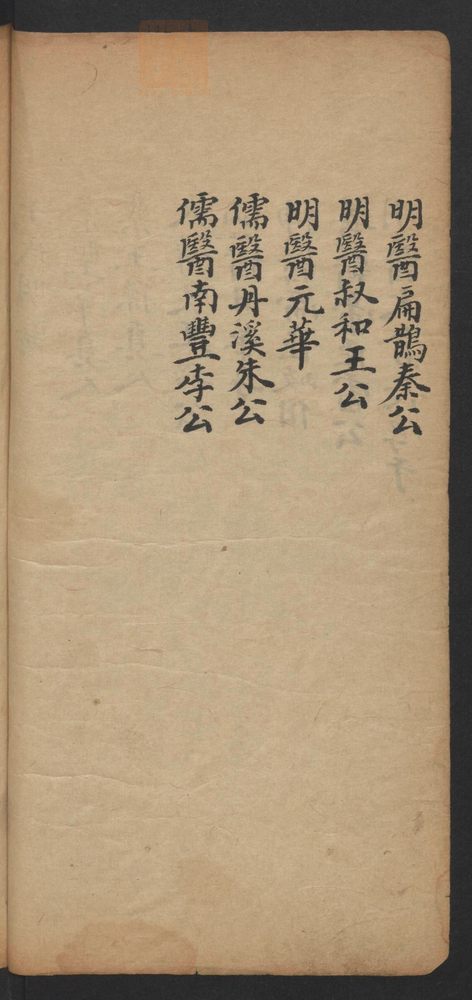 明醫扁鵲秦公
明醫叔和王公
明醫元華
儒醫丹溪朱公
儒醫南豐李公